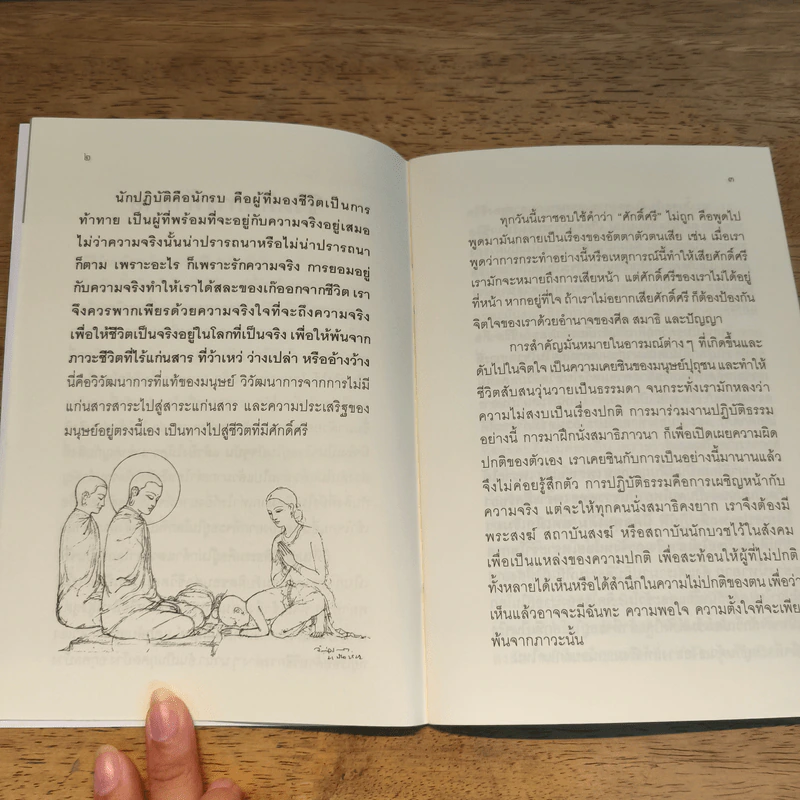 ๒
นักปฏิบัติคือนักรบ คือผู้ที่มองชีวิตเป็นการ
ท้าทาย เป็นผู้ที่พร้อมที่จะอยู่กับความจริงอยู่เสมอ
ไม่ว่าความจริงนั้นน่าปรารถนาหรือไม่น่าปรารถนา
ก็ตาม เพราะอะไร ก็เพราะรักความจริง การยอมอยู่
กับความจริงทำให้เราได้สละของเก๊ออกจากชีวิต เรา
จึงควรพากเพียรด้วยความจริงใจที่จะถึงความจริง
เพื่อให้ชีวิตเป็นจริงอยู่ในโลกที่เป็นจริง เพื่อให้พ้นจาก
ภาวะชีวิตที่ไร้แก่นสาร ที่ว้าเหว่ ว่างเปล่า หรืออ้างว้าง
นี่คือวิวัฒนาการที่แท้ของมนุษย์ วิวัฒนาการจากการไม่มี
แก่นสารสาระไปสู่สาระแก่นสาร และความประเสริฐของ
มนุษย์อยู่ตรงนี้เอง เป็นทางไปสู่ชีวิตที่มีศักดิ์ศรี
๓
ทุกวันนี้เราชอบใช้คำว่า “ศักดิ์ศรี” ไม่ถูก คือพูดไป
พูดมามันกลายเป็นเรื่องของอัตตาตัวตนเสีย เช่น เมื่อเรา
พูดว่าการกระทำอย่างนี้หรือเหตุการณ์นี้ทำให้เสียศักดิ์ศรี
เรามักจะหมายถึงการเสียหน้า แต่ศักดิ์ศรีของเราไม่ได้อยู่
ที่หน้า หากอยู่ที่ใจ ถ้าเราไม่อยากเสียศักดิ์ศรี ก็ต้องป้องกัน
จิตใจของเราด้วยอำนาจของศีล สมาธิ และปัญญา
การสำคัญมั่นหมายในอารมณ์ต่างๆ ที่เกิดขึ้นและ
ดับไปในจิตใจ เป็นความเคยชินของมนุษย์ปุถุชน และทำให้
ชีวิตสับสนวุ่นวายเป็นธรรมดา จนกระทั่งเรามักหลงว่า
ความไม่สงบเป็นเรื่องปกติ การมาร่วมงานปฏิบัติธรรม
อย่างนี้ การมาฝึกนั่งสมาธิภาวนา ก็เพื่อเปิดเผยความผิด
ปกติของตัวเอง เราเคยชินกับการเป็นอย่างนี้มานานแล้ว
จึงไม่ค่อยรู้สึกตัว การปฏิบัติธรรมคือการเผชิญหน้ากับ
ความจริง แต่จะให้ทุกคนนั่งสมาธิคงยาก เราจึงต้องมี
พระสงฆ์ สถาบันสงฆ์ หรือสถาบันนักบวชไว้ในสังคม
เพื่อเป็นแหล่งของความปกติ เพื่อสะท้อนให้ผู้ที่ไม่ปกติ
ทั้งหลายได้เห็นหรือได้สำนึกในความไม่ปกติของตน เพื่อว่า
เห็นแล้วอาจจะมีฉันทะ ความพอใจ ความตั้งใจที่จะเพีย
พ้นจากภาวะนั้น